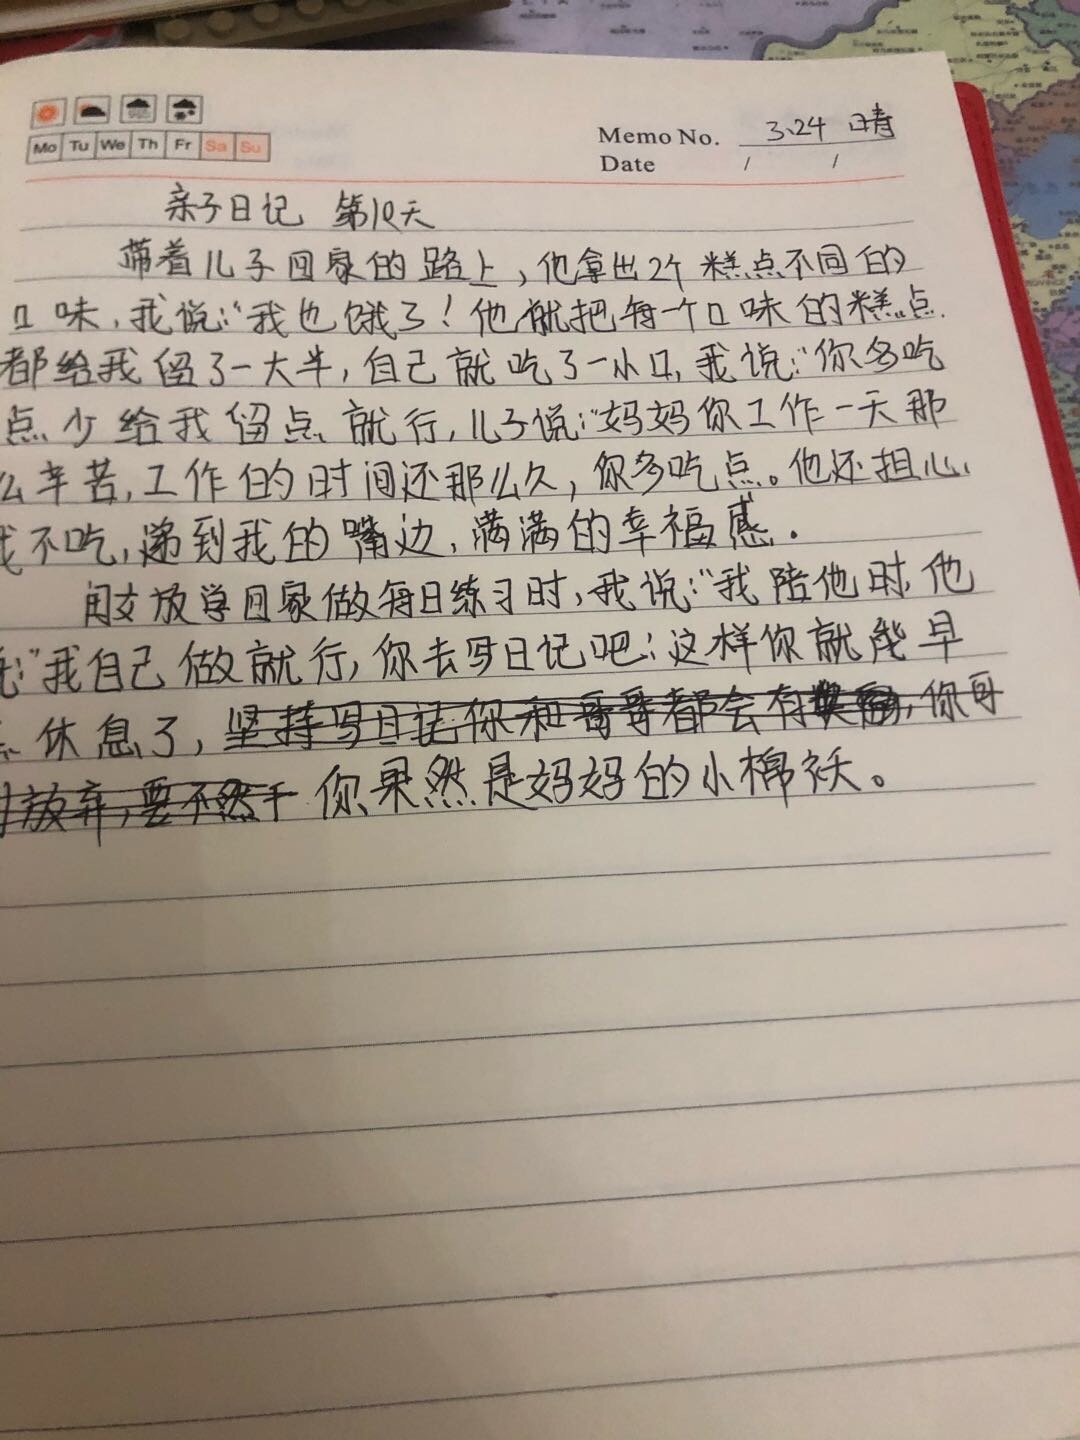 Mo Tu We Th Fr Sa Su
Memo No. 3.24 晴
Date / /
亲子日记 第10天
带着儿子回家的路上,他拿出2个糕点不同的
口味,我说:"我也饿了!他就把每一个口味的糕点
都给我留了一大半,自己就吃了一小口,我说:"你多吃
点少给我留点就行,儿子说:"妈妈你工作一天那
么辛苦,工作的时间还那么久,你多吃点。他还担心
我不吃,递到我的嘴边,满满的幸福感.
闺女放学回家做每日练习时,我说:"我陪他时,他
说"我自己做就行,你去写日记吧;这样你就能早
点休息了,坚持写日记你和哥哥都会有,你哥
放弃,要不然 你果然是妈妈的小棉袄。